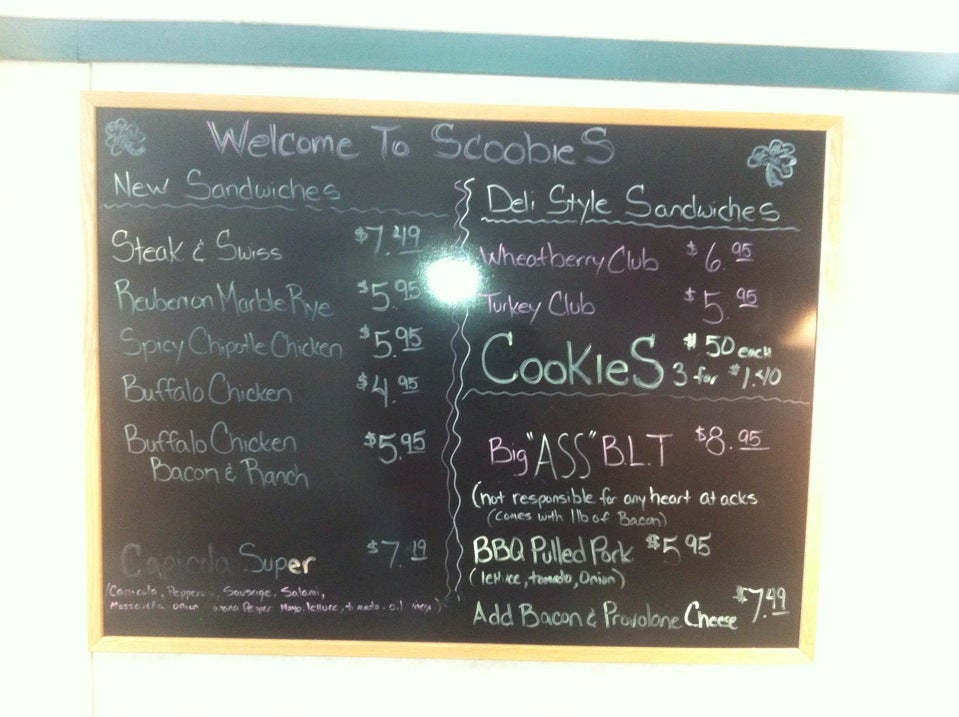 Welcome To ScoobieS
New Sandwiches
Steak & Swiss $7.49
Reuben on Marble Rye $5.95
Spicy Chipotle Chicken $5.95
Buffalo Chicken $4.95
Buffalo Chicken $5.95
Bacon & Ranch
Capicola Super
(Capicola, Pepperoni, Sausage, Salami,
Mozzarella onion Peper Mayo, lettuce, tomato, oil
Deli Style Sandwiches
Wheatberry Club $6.95
Turkey Club $5.95
CooKieS $.50 each
3 for $1.40
Big "ASS" B.L.T $8.95
(not responsible for any heart at acks
(Comes with 1lb of Bacon)
BBQ Pulled Pork $5.95
(lettuce, tomato, Onion)
Add Bacon & Provolone Cheese $7.49